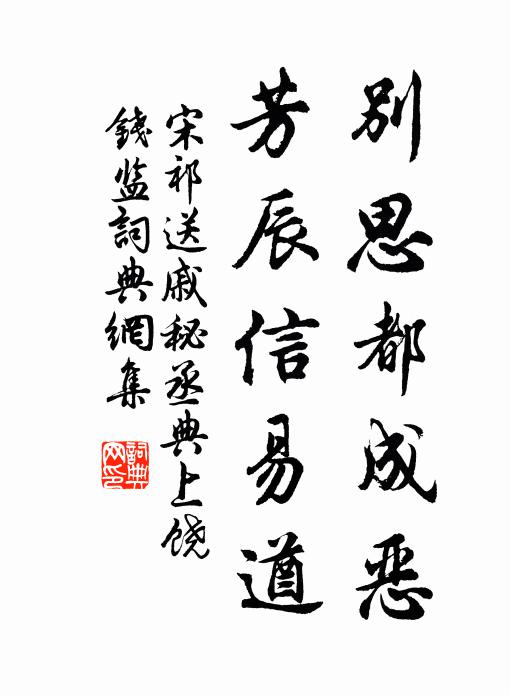 別思都成惡
芳辰信易遒
宋祁送戚秘丞典上饶
錢监詞典網集
詞典网印